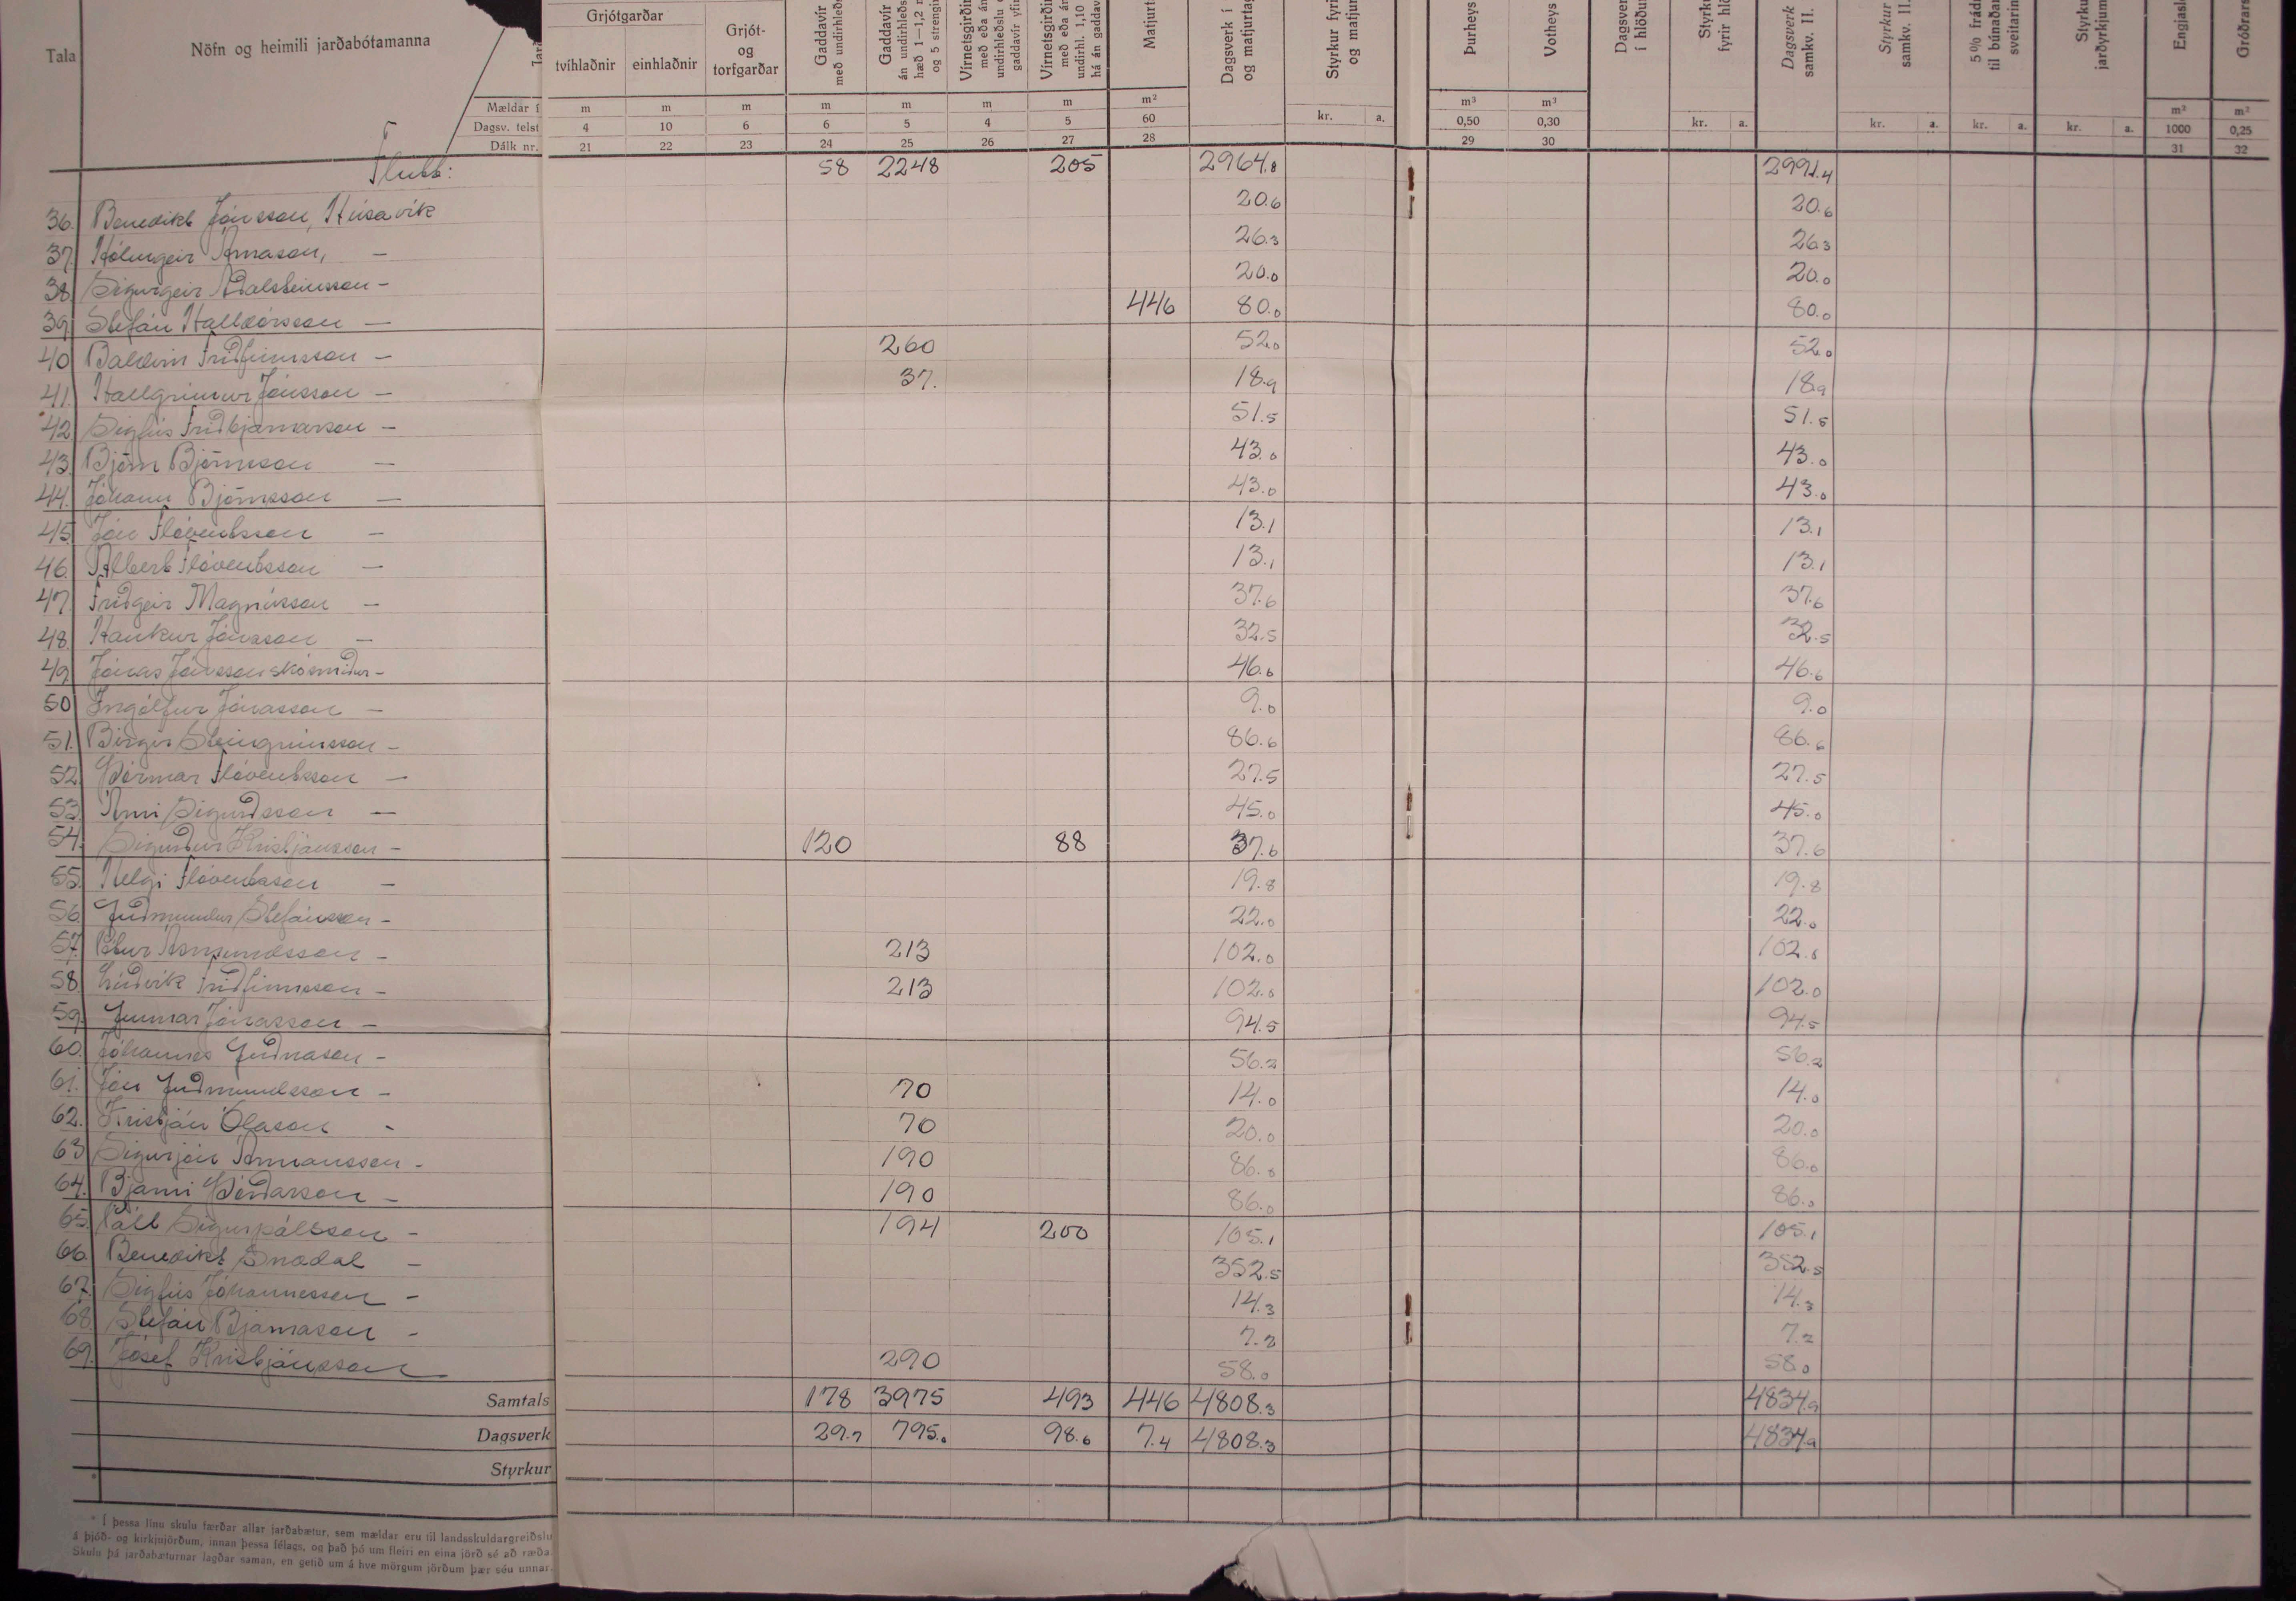 Tala Nöfn og heimili jarðabótamanna Grjótgarðar tvíhlaðnir einhlaðnir Grjót- og torfgarðar Gaddavír með undirhleðs Gaddavír án undirhleðs hæð 1—1,2 m og 5 strengir Vírnetsgirðin með eða án undirhleðslu gaddavír yfir Vírnetsgirðin með eða án undirhl. 1,10 há án gaddav Matjurt Dagsverk í og matjurtag Styrkur fyri og matjur Þurheys Votheys Dagsver í hlöðu Styrku fyrir hlö Dagsverk samkv. II. Styrkur samkv. II. 5% frádr til búnaðar sveitarin Styrku jarðyrkjum Engjaslé Gróðrars
Mældar m m m m m m m m² kr. a. m³ m³ kr. a. kr. a. kr. a. kr. a. m² m²
Dagsv. telst 4 10 6 6 5 4 5 60 0,50 0,30 1000 0,25
Dálk nr. 21 22 23 24 25 26 27 28 29 30 31 32
Flutt: 58 2248 205 2964.8 2991.4
36. Benedikt Jónsson, Húsavík 20.6 20.6
37. Hólmgeir Árnason, — 26.3 26.3
38. Sigurgeir Aðalsteinsson — 20.0 20.0
39. Stefán Halldórsson — 446 80.0 80.0
40 Baldvin Friðfinnsson — 260 52.0 52.0
41. Hallgrímur Jónsson — 37. 18.9 18.9
42. Sigfús Friðbjarnarson — 51.5 51.5
43. Björn Björnsson — 43.0 43.0
44. Jóhann Björnsson — 43.0 43.0
45. Jón Flóventsson — 13.1 13.1
46. Albert Flóventsson — 13.1 13.1
47. Friðgeir Magnússon — 37.6 37.6
48. Haukur Jónsson — 32.5 32.5
49. Jónas Jónsson skósmiður — 46.6 46.6
50 Ingólfur Jónasson — 9.0 9.0
51. Birgir Steingrímsson — 86.6 86.6
52. Þórmar Flóventsson — 27.5 27.5
53. Árni Sigurðsson — 45.0 45.0
54. Sigurður Kristjánsson — 120 88 37.6 37.6
55. Helgi Flóventsson — 19.8 19.8
56. Guðmundur Stefánsson — 22.0 22.0
57. Pétur Ásmundsson — 213 102.0 102.0
58. Lúðvík Friðfinnsson — 213 102.0 102.0
59. Gunnar Jónasson — 94.5 94.5
60. Jóhannes Guðnason — 56.2 56.2
61. Jón Guðmundsson — 70 14.0 14.0
62. Kristján Ólason - 70 20.0 20.0
63 Sigurjón Ármannsson - 190 86.0 86.0
64. Bjarni Þórðarson — 190 86.0 86.0
65. Páll Sigurpálsson — 194 200 105.1 105.1
66. Benedikt Snædal — 352.5 352.5
67. Sigfús Jóhannesson — 14.3 14.3
68. Stefán Bjarnason — 7.2 7.2
69. Jósef Kristjánsson 290 58.0 58.0
Samtals 178 3975 493 446 4808.3 4834.9
Dagsverk 29.7 795.0 98.6 7.4 4808.3 4834.9
Styrkur
* Í þessa línu skulu færðar allar jarðabætur, sem mældar eru til landsskuldargreiðslu
á þjóð- og kirkjujörðum, innan þessa félags, og það þó um fleiri en eina jörð sé að ræða.
Skulu þá jarðabæturnar lagðar saman, en getið um á hve mörgum jörðum þær séu unnar.